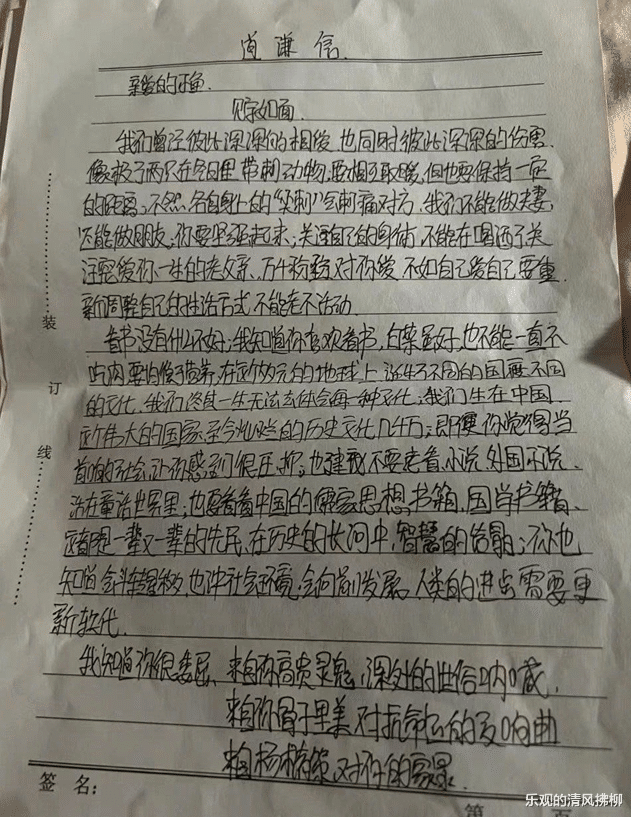 道谦信.
亲爱的正鱼.
见字如面.
我们曾经彼此深深的相爱 也同时彼此深深的伤害
像极了两只在冬日里带刺动物.要相互取暖,但也要保持一定
的距离.不然,各自身上的"尖刺"会刺痛对方.我们不能做夫妻,
还能做朋友,你要坚强起来;关注自己的身体,不能在喝酒了关
注宠爱你一生的老父亲.万千粉黛对你爱 不如自己爱自己要重
新调整自己的生活方式 不能老不活动.
看书没有什么不好;我知道你喜欢看书,白菜虽好,也不能一直不
吃肉 要均衡营养,在这的地球上 诞生了不同的国度 不同
的文化.我们终其一生无法去体会每一种文化;我们生在中国.
这个伟大的国家.至今灿烂的历史文化几千万;即便你觉得当
前的社会,让你感到很压抑;也建议不要老看,小说,外国小说.
活在童话世界里;也要看看中国的儒家思想,书籍.国学书籍.
这都是一辈又一辈的先民,在历史的长河中,智慧的;你也
知道斗转星移,也社会环境,会向前发展.人类的进步需要更
新软代.
我知道你很委屈、来自你高贵灵魂、深处的世俗呐喊.
来自你骨子里美对抗命运的交响曲
来自杨对你的
装
订
线
签 名:
第 页
乐观的清风拂柳